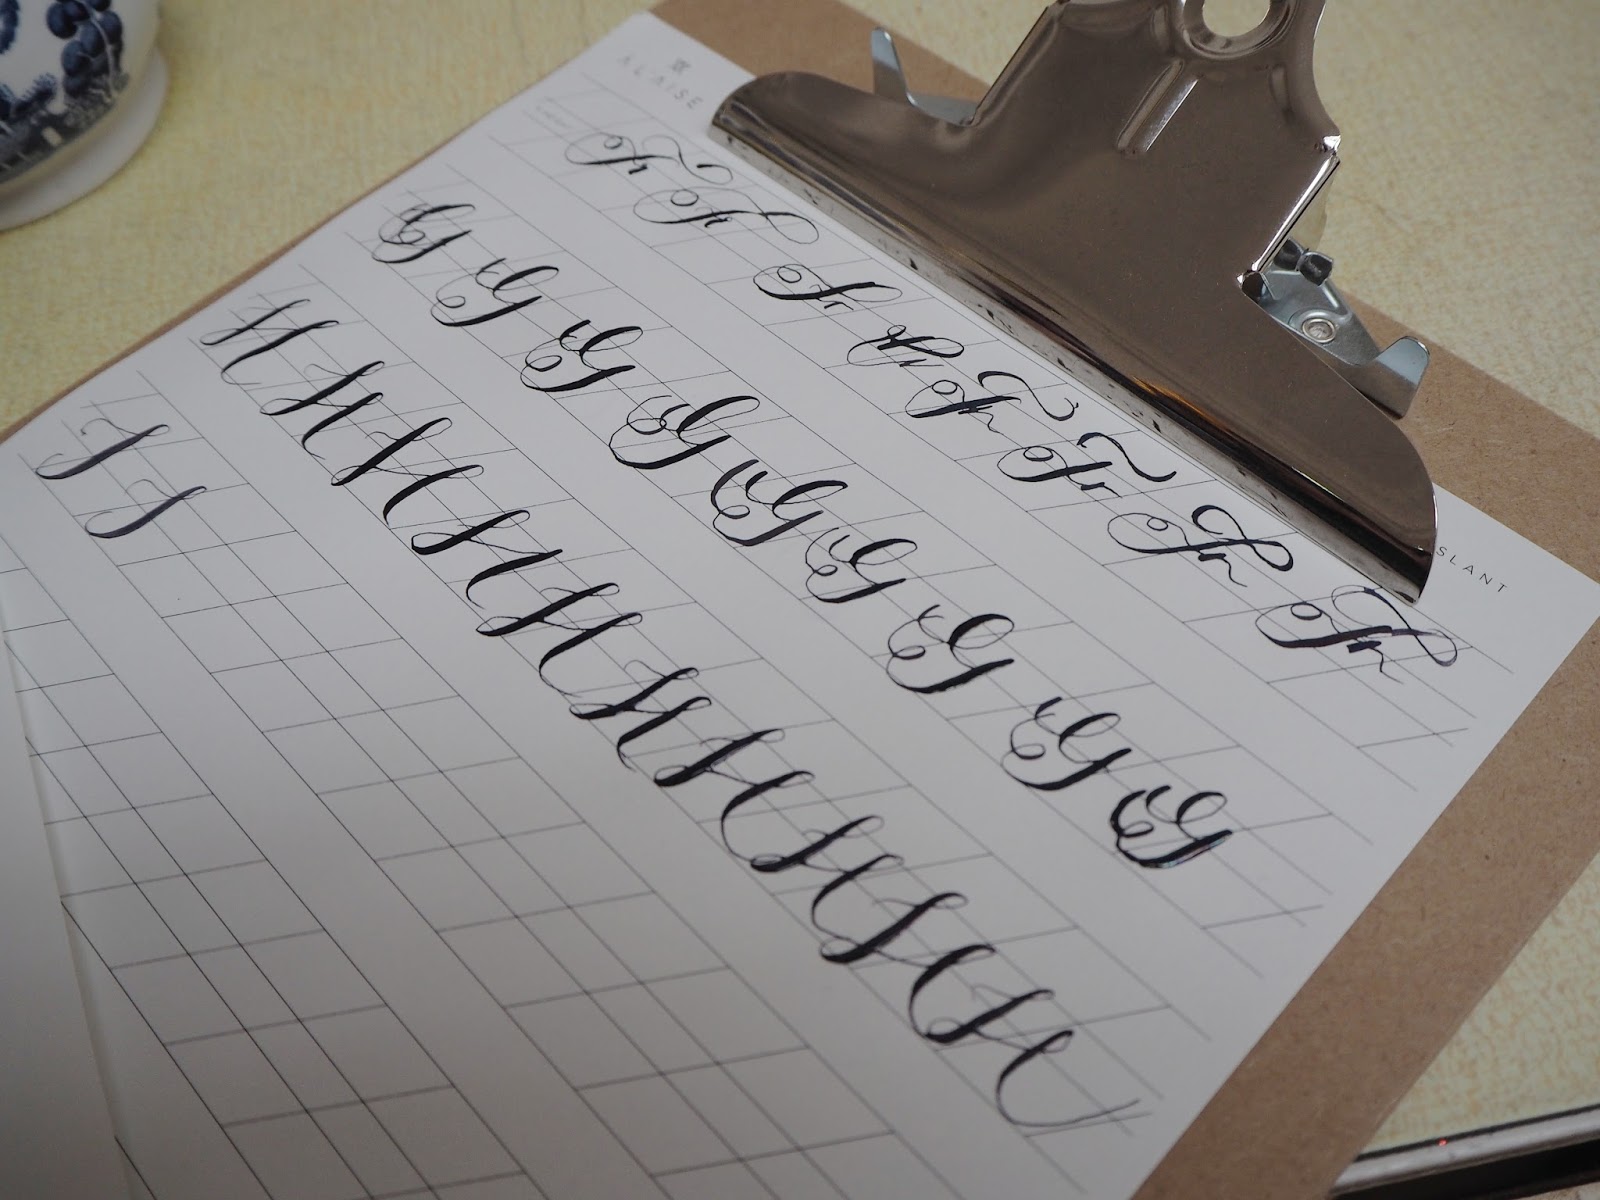 ALAISE
SLANT
F F F F F F F F
G G G G G G G G G
H H H H H H H H H H
I I